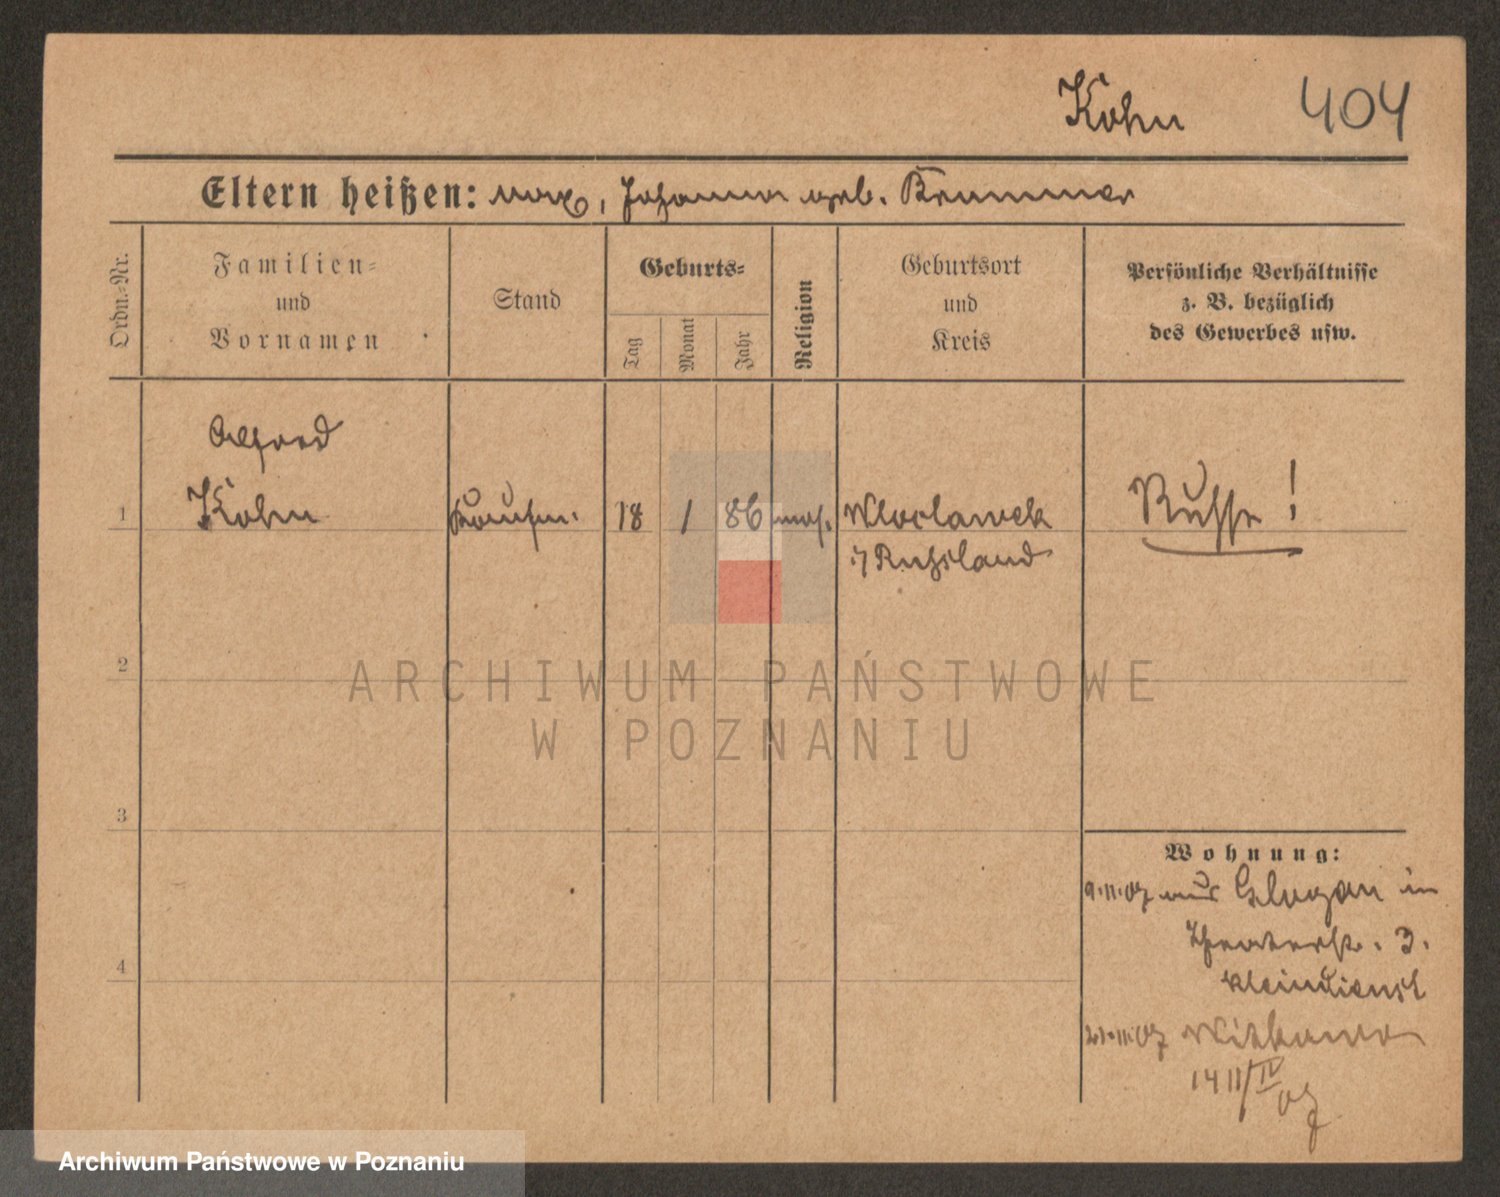 Kohn 404
Eltern heißen: Max, Johanna geb. Brummer
Ordn.-Nr.
Familien-
und
Vornamen
Stand
Geburts-
Tag
Monat
Jahr
Religion
Geburtsort
und
Kreis
Persönliche Verhältnisse
z. B. bezüglich
des Gewerbes usw.
Alfred
1 Kohn Kaufm. 18 1 86 mos. Wloclawek Russe!
i/Russland
2
3
4
Wohnung:
9.11.07 aus Glogau in
Theaterstr. 3.
Kleindienst
21.11.07 Witkowo
1411/IV
07
ARCHIWUM PAŃSTWOWE
W POZNANIU
Archiwum Państwowe w Poznaniu